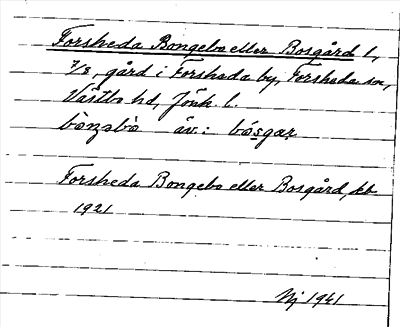 Forsheda Bongebo eller Bosgård 1,
7/8, gård i Forsheda by, Forsheda sn,
Västbo hd, Jönk. l.
bòŋəbò äv.: bósgar
Forsheda Bongebo eller Bosgård, jb
1921
Nj 1941